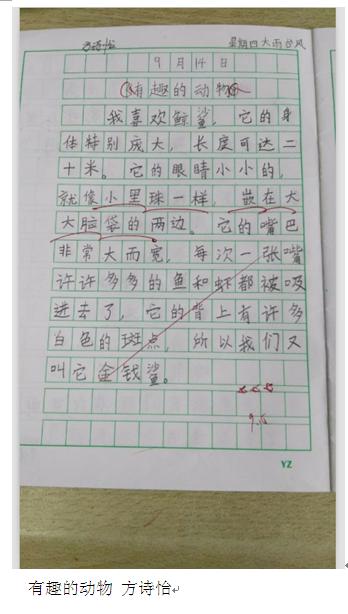 方诗怡 星期四大雨台风
9月14日
有趣的动物
我喜欢鲸鲨，它的身
体特别庞大，长度可达二
十米。它的眼睛小小的，
就像小黑珠一样，嵌在大
大脑袋的两边。它的嘴巴
非常大而宽，每次一张嘴
许许多多的鱼和虾都被吸
进去了，它的背上有许多
白色的斑点，所以我们又
叫它金钱鲨。
9.15
YZ
有趣的动物 方诗怡